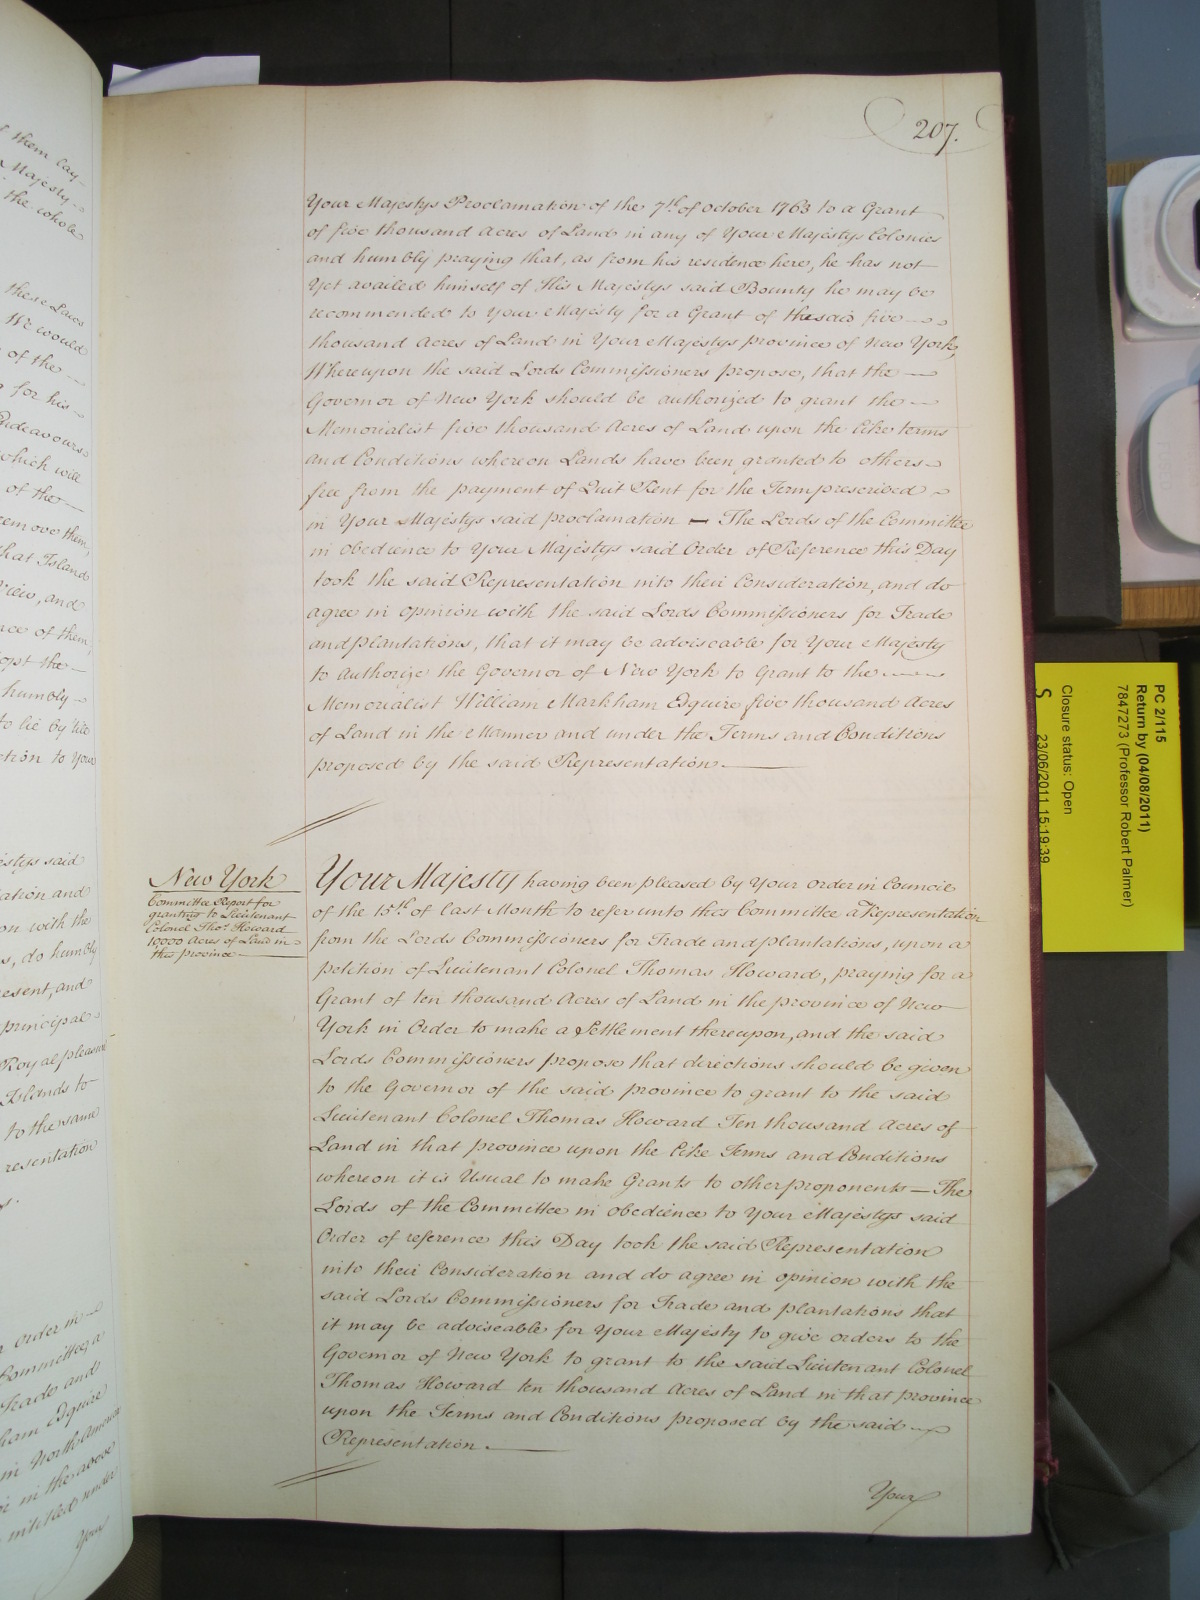 207.
Your Majestys Proclamation of the 7th of October 1763 to a Grant
of five thousand Acres of Land in any of Your Majestys Colonies
and humbly praying that, as from his residence here, he has not
Yet availed himself of His Majestys said Bounty he may be
recommended to Your Majesty for a Grant of the said five
thousand Acres of Land in Your Majestys province of New York,
Whereupon the said Lords Commissioners propose, that the
Governor of New York should be authorized to grant the
Memorialist five thousand Acres of Land upon the like terms
and Conditions whereon Lands have been granted to others
free from the payment of Quit Rent for the Term prescribed
in Your Majestys said proclamation — The Lords of the Committee
in obedience to Your Majestys said Order of Reference this Day
took the said Representation into their Consideration, and do
agree in opinion with the said Lords Commissioners for Trade
and plantations, that it may be adviseable for Your Majesty
to authorize the Governor of New York to Grant to the
Memorialist William Markham Esquire five thousand Acres
of Land in the Manner and under the Terms and Conditions
proposed by the said Representation.
New York
Committee Report for
granting to Lieutenant
Colonel Thos. Howard
10000 Acres of Land in
this province
Your Majesty having been pleased by Your order in Council
of the 15th of last Month to refer unto this Committee a Representation
from the Lords Commissioners for Trade and plantations, upon a
petition of Lieutenant Colonel Thomas Howard, praying for a
Grant of ten thousand Acres of Land in the province of New
York in Order to make a Settlement thereupon, and the said
Lords Commissioners propose that directions should be given
to the Governor of the said province to grant to the said
Lieutenant Colonel Thomas Howard Ten thousand Acres of
Land in that province upon the like Terms and Conditions
whereon it is Usual to make Grants to other proponents — The
Lords of the Committee in obedience to Your Majestys said
Order of reference this Day took the said Representation
into their Consideration and do agree in opinion with the
said Lords Commissioners for Trade and plantations that
it may be adviseable for Your Majesty to give orders to the
Governor of New York to grant to the said Lieutenant Colonel
Thomas Howard ten thousand Acres of Land in that province
upon the Terms and Conditions proposed by the said
Representation.
Your
PC 2/115
Return by (04/08/2011)
7847273 (Professor Robert Palmer)
Closure status: Open
S 23/06/2011 15:19:39